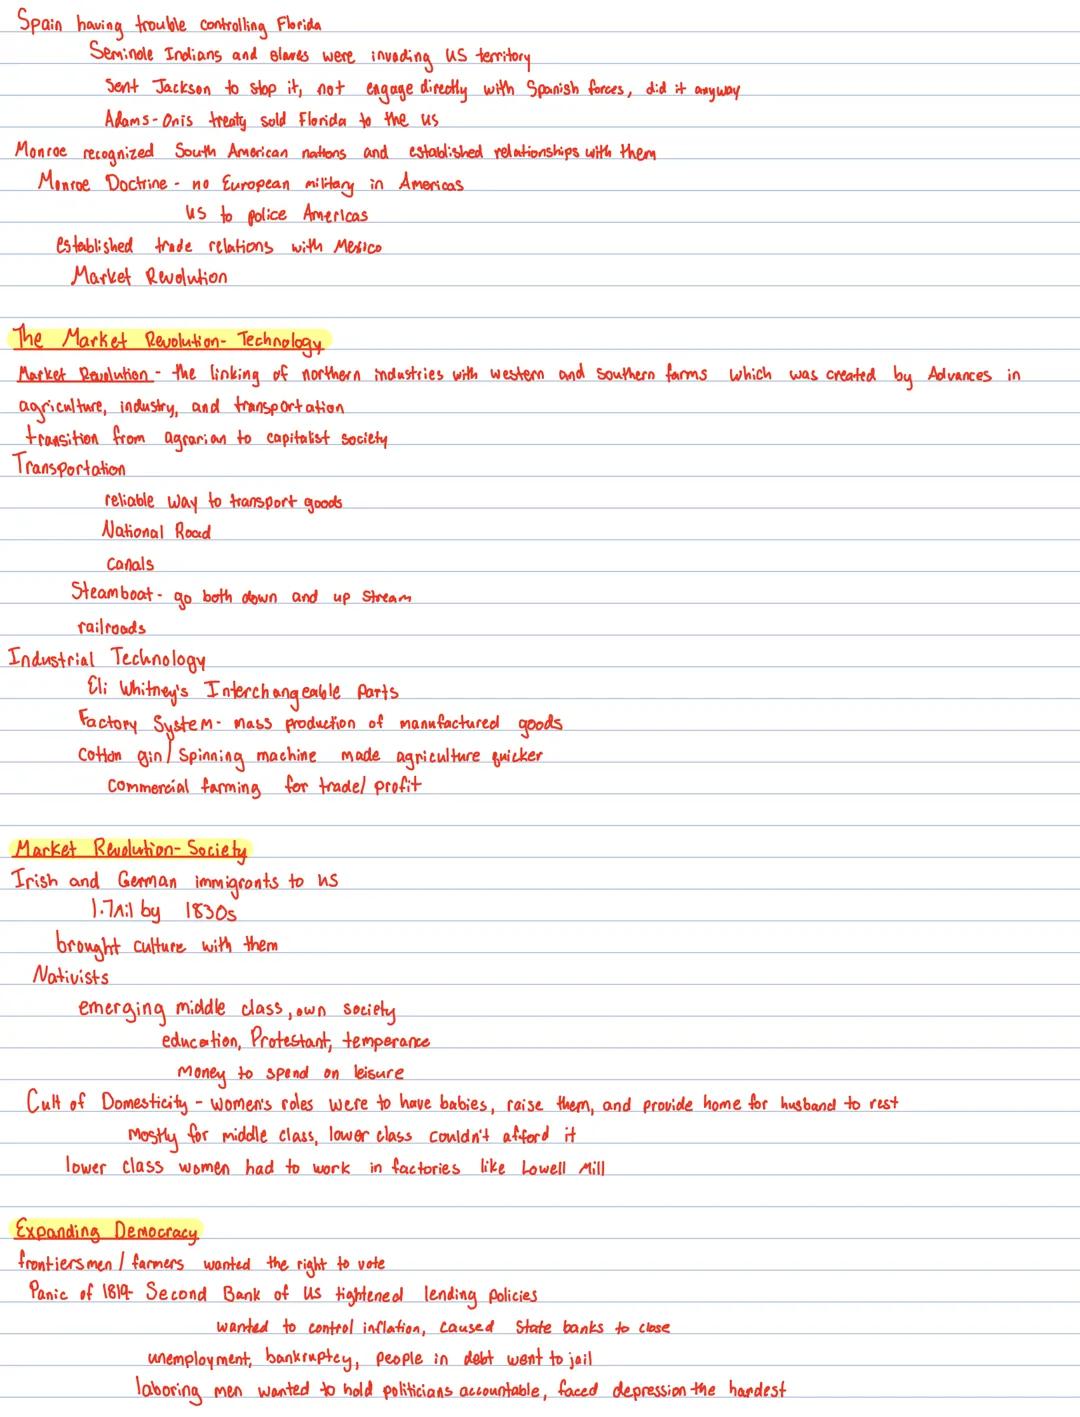 Spain having trouble controlling Florida
Seminole Indians and slaves were invading US territory
Sent Jackson to stop it, not engage directly with Spanish forces, did it anyway
Adams-Onis treaty sold Florida to the US
Monroe recognized South American nations and established relationships with them
Monroe Doctrine - no European military in Americas
US to police Americas
established trade relations with Mexico
Market Revolution
The Market Revolution- Technology
Market Revolution - the linking of northern industries with western and Southern farms which was created by Advances in
agriculture, industry, and transportation
transition from agrarian to capitalist society
Transportation
reliable way to transport goods
National Road
canals
Steamboat- go both down and up stream
railroads
Industrial Technology
Eli Whitney's Interchangeable Parts
Factory System- mass production of manufactured goods
Cotton gin/ Spinning machine made agriculture quicker
commercial farming for trade/ profit
Market Revolution- Society
Irish and German immigrants to US
by 1830s
brought culture with them
Nativists
emerging middle class, own society
education, Protestant, temperance
Money to spend on leisure
Cult of Domesticity - women's roles were to have babies, raise them, and provide home for husband to rest
Mostly for middle class, lower class couldn't afford it
lower class women had to work in factories like Lowell Mill
Expanding Democracy
frontiersmen / farmers wanted the right to vote
Panic of 1819- Second Bank of US tightened lending policies
wanted to control inflation, caused State banks to close
unemployment, bankruptcy, people in debt went to jail
laboring men wanted to hold politicians accountable, faced depression the hardest